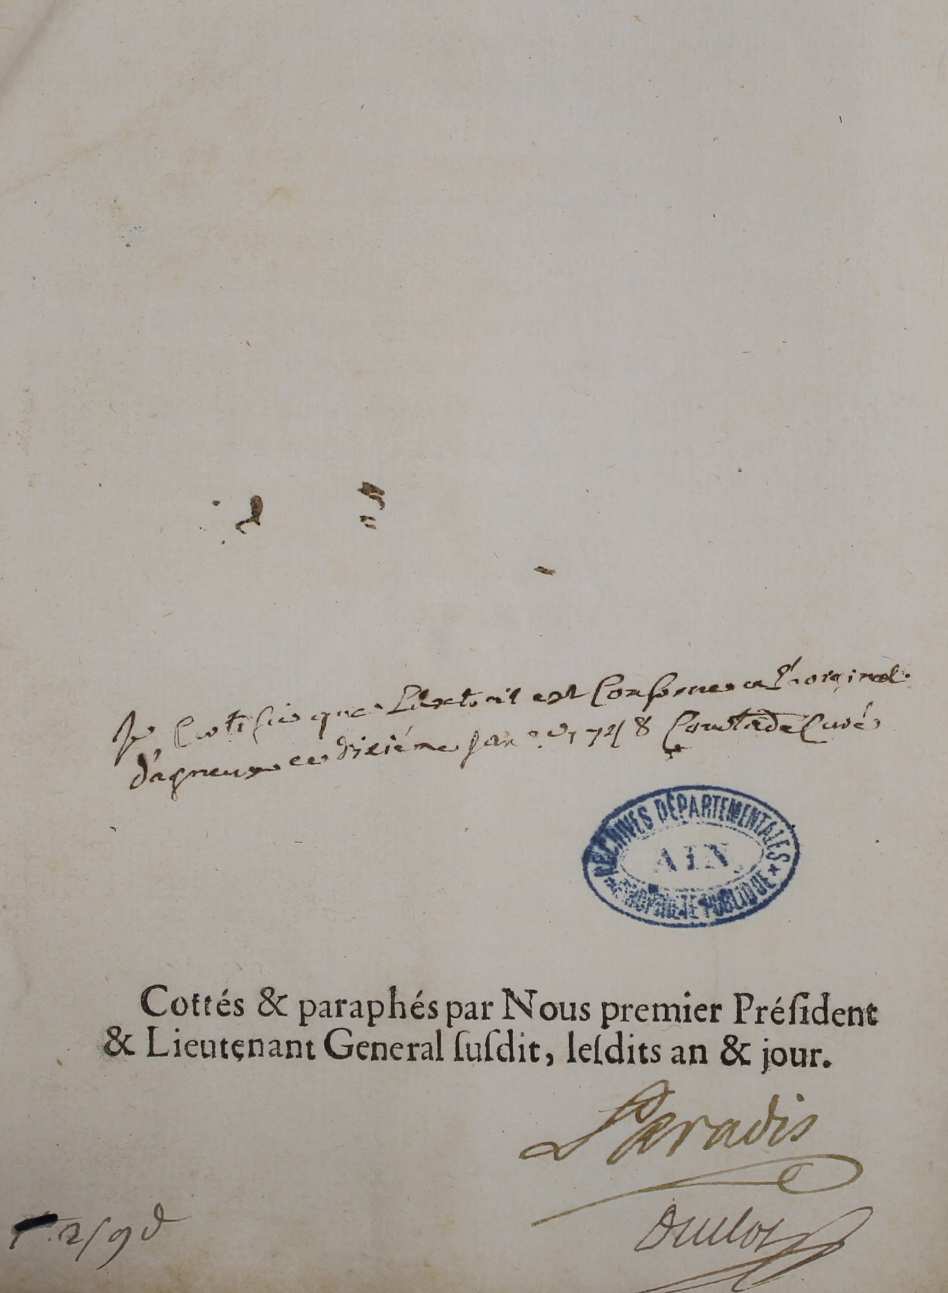 Je Certifie que L'extrait est Conforme a L'original
d'agneux ce dixiéme jan.er 1748 Coutard Curé
ARCHIVES DÉPARTEMENTALES
AIN
PROPRIÉTÉ PUBLIQUE
Cottés & paraphés par Nous premier Préſident
& Lieutenant General ſuſdit, leſdits an & jour.
Paradis
Duclos
2/9d